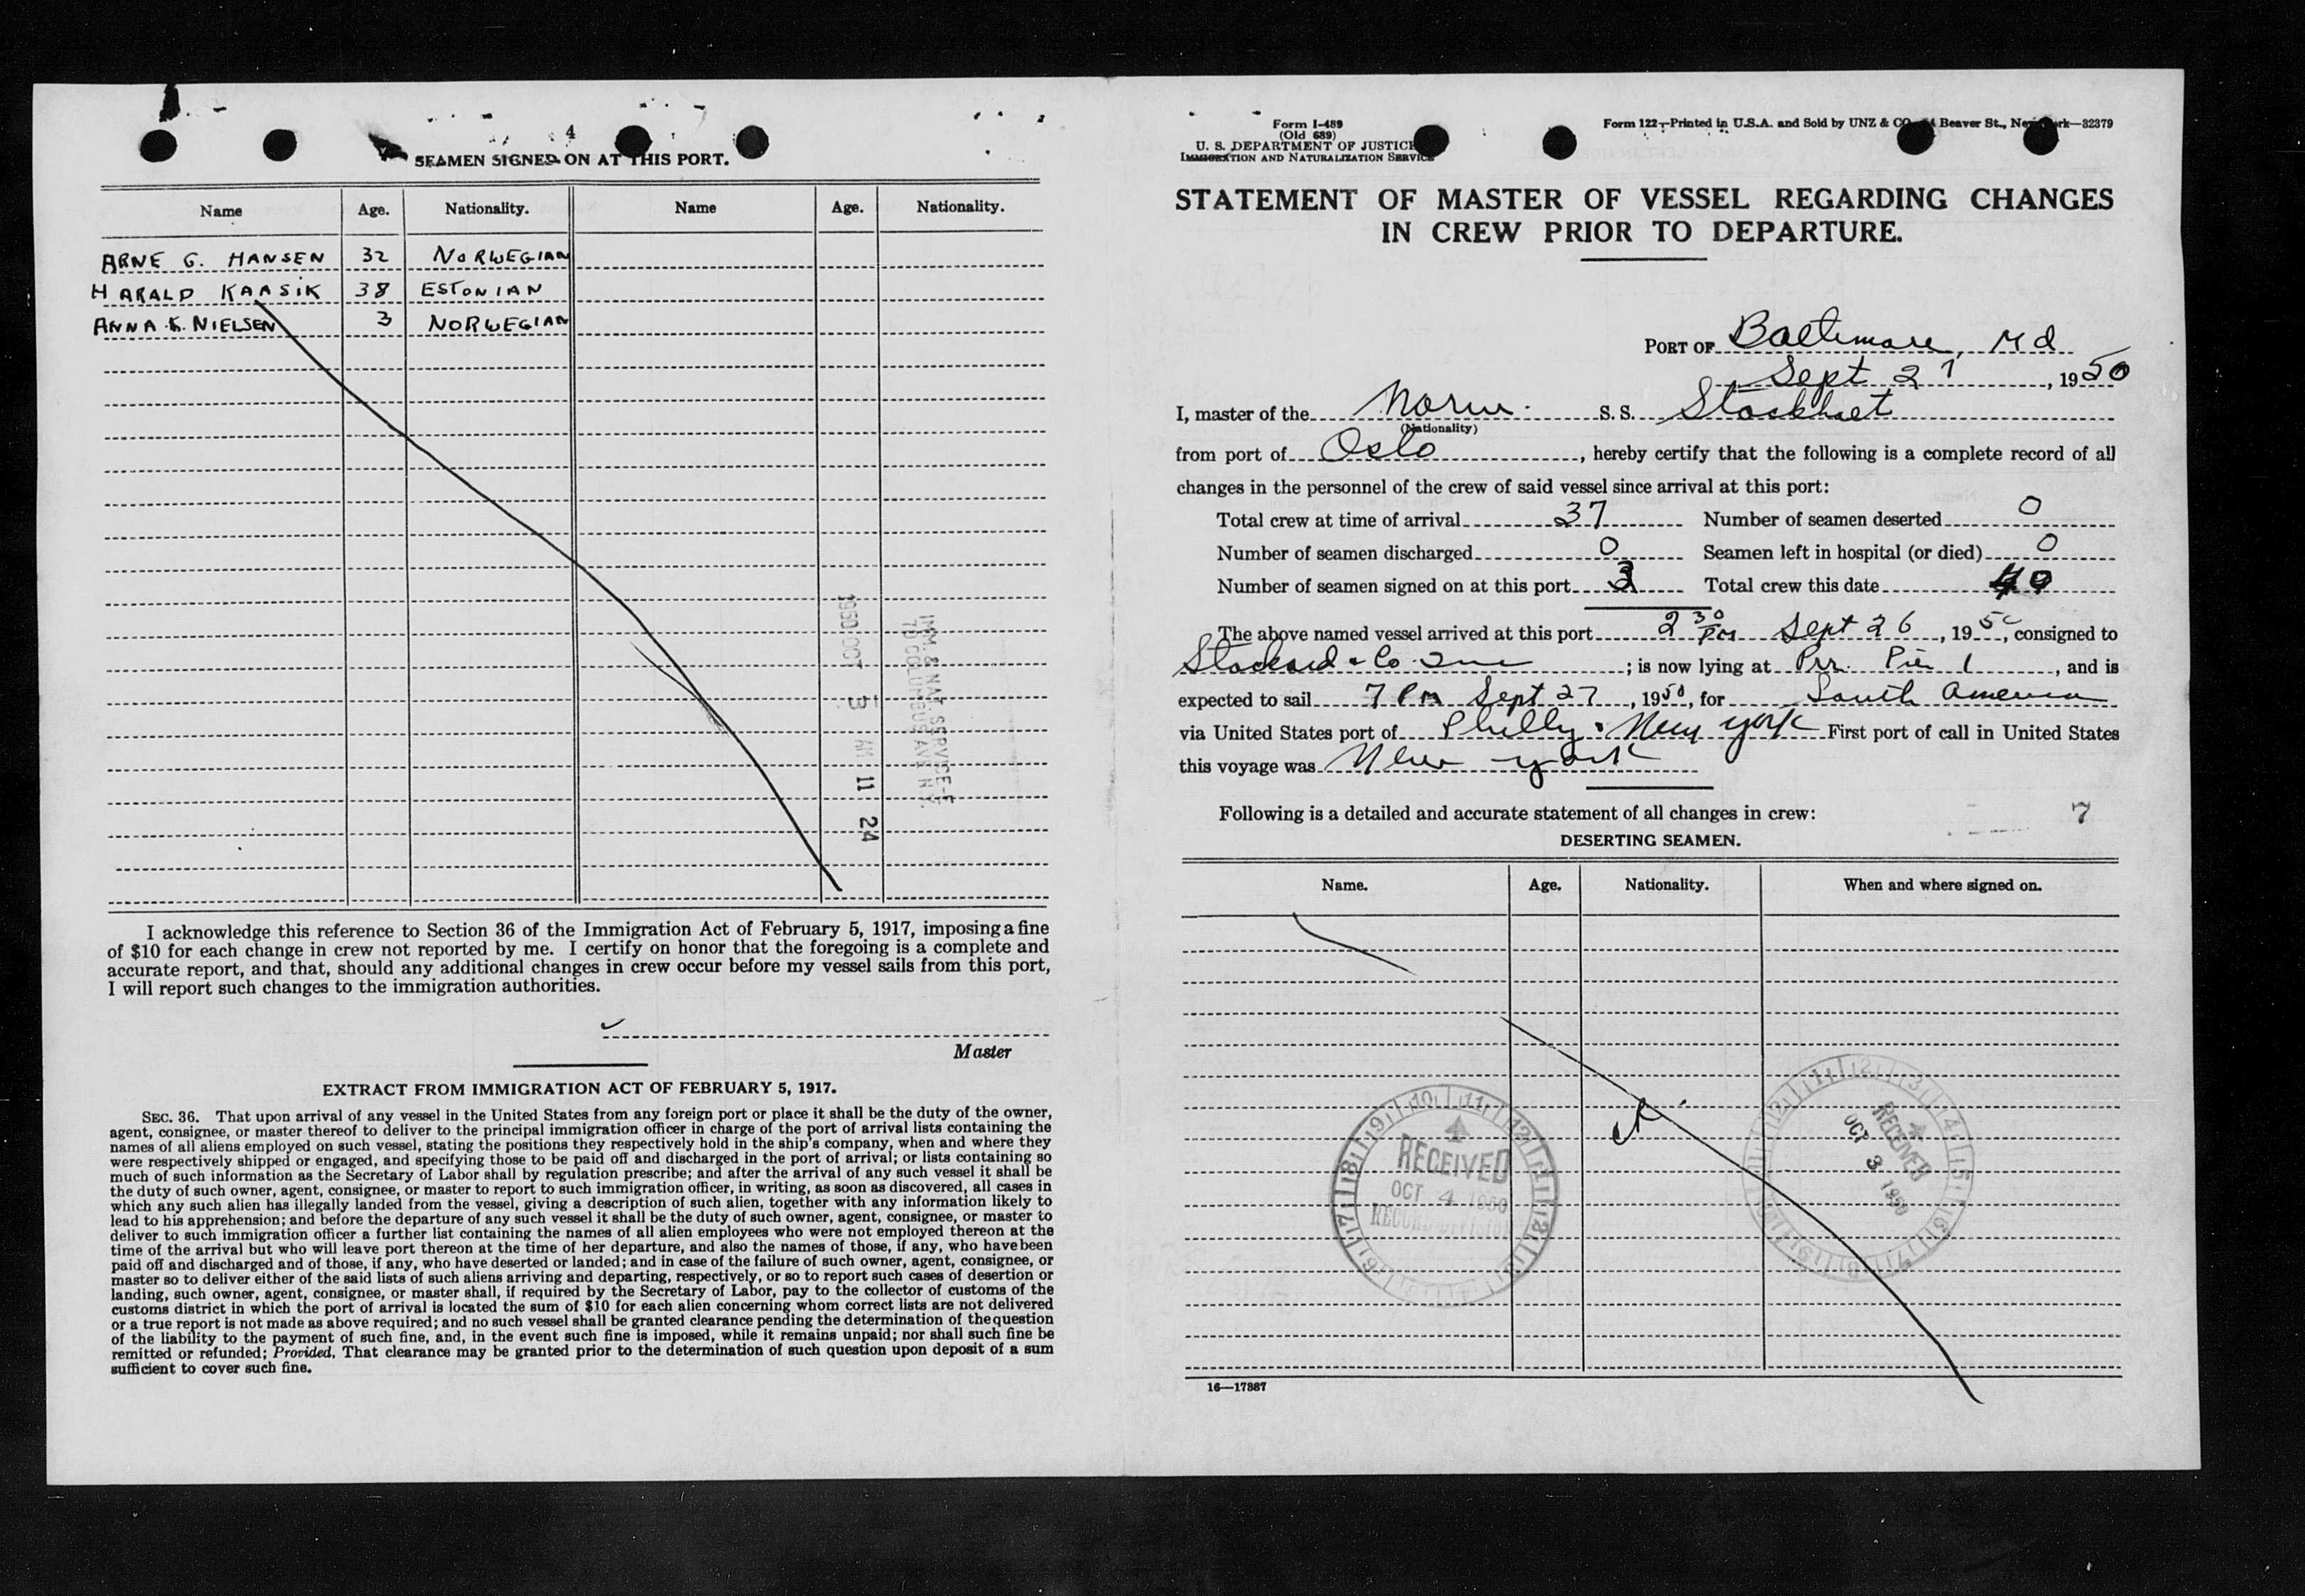 4
SEAMEN SIGNED ON AT THIS PORT.
Name Age. Nationality. Name Age. Nationality.
ARNE G. HANSEN 32 NORWEGIAN
HARALD KAASIK 38 ESTONIAN
ANNA K. NIELSEN 3 NORWEGIAN
1950 OCT 3 AM 11 24
IMM. & NAT. SERVICE
70 COLUMBUS AVE. N.Y.
I acknowledge this reference to Section 36 of the Immigration Act of February 5, 1917, imposing a fine
of $10 for each change in crew not reported by me. I certify on honor that the foregoing is a complete and
accurate report, and that, should any additional changes in crew occur before my vessel sails from this port,
I will report such changes to the immigration authorities.
Master
EXTRACT FROM IMMIGRATION ACT OF FEBRUARY 5, 1917.
SEC. 36. That upon arrival of any vessel in the United States from any foreign port or place it shall be the duty of the owner,
agent, consignee, or master thereof to deliver to the principal immigration officer in charge of the port of arrival lists containing the
names of all aliens employed on such vessel, stating the positions they respectively hold in the ship's company, when and where they
were respectively shipped or engaged, and specifying those to be paid off and discharged in the port of arrival; or lists containing so
much of such information as the Secretary of Labor shall by regulation prescribe; and after the arrival of any such vessel it shall be
the duty of such owner, agent, consignee, or master to report to such immigration officer, in writing, as soon as discovered, all cases in
which any such alien has illegally landed from the vessel, giving a description of such alien, together with any information likely to
lead to his apprehension; and before the departure of any such vessel it shall be the duty of such owner, agent, consignee, or master to
deliver to such immigration officer a further list containing the names of all alien employees who were not employed thereon at the
time of the arrival but who will leave port thereon at the time of her departure, and also the names of those, if any, who have been
paid off and discharged and of those, if any, who have deserted or landed; and in case of the failure of such owner, agent, consignee, or
master so to deliver either of the said lists of such aliens arriving and departing, respectively, or so to report such cases of desertion or
landing, such owner, agent, consignee, or master shall, if required by the Secretary of Labor, pay to the collector of customs of the
customs district in which the port of arrival is located the sum of $10 for each alien concerning whom correct lists are not delivered
or a true report is not made as above required; and no such vessel shall be granted clearance pending the determination of the question
of the liability to the payment of such fine, and, in the event such fine is imposed, while it remains unpaid; nor shall such fine be
remitted or refunded; Provided, That clearance may be granted prior to the determination of such question upon deposit of a sum
sufficient to cover such fine.
Form I-489
(Old 689)
U. S. DEPARTMENT OF JUSTICE
IMMIGRATION AND NATURALIZATION SERVICE
Form 122—Printed in U.S.A. and Sold by UNZ & CO. Beaver St., New York—32379
STATEMENT OF MASTER OF VESSEL REGARDING CHANGES
IN CREW PRIOR TO DEPARTURE.
PORT OF Baltimore, Md
Sept 27, 1950
I, master of the Norw. S. S. Stockholt
(Nationality)
from port of Oslo, hereby certify that the following is a complete record of all
changes in the personnel of the crew of said vessel since arrival at this port:
Total crew at time of arrival 37 Number of seamen deserted 0
Number of seamen discharged 0 Seamen left in hospital (or died) 0
Number of seamen signed on at this port 3 Total crew this date 40
The above named vessel arrived at this port 2 30 PM Sept 26, 1950, consigned to
Stockard & Co Inc; is now lying at Prr. Pier 1, and is
expected to sail 7 PM Sept 27, 1950, for South America
via United States port of Philly & New York First port of call in United States
this voyage was New York
Following is a detailed and accurate statement of all changes in crew: 7
DESERTING SEAMEN.
Name. Age. Nationality. When and where signed on.
RECEIVED
OCT 4 1950
RECORD SECTION
RECEIVED
OCT 3 1950
16—17887